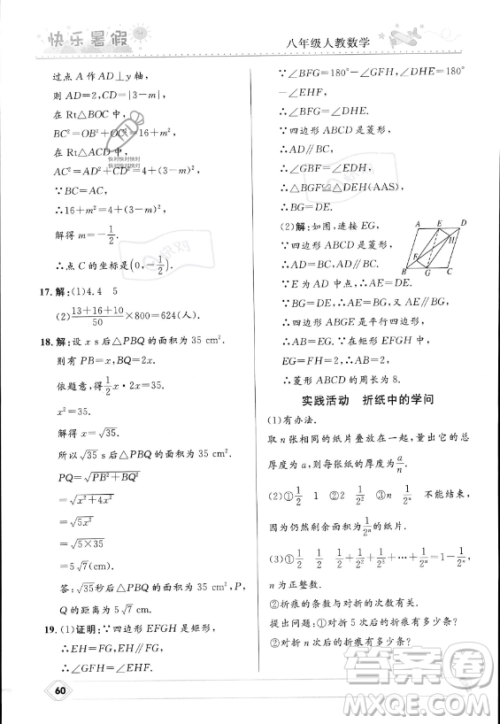 快乐暑假
八年级人教数学
过点 A 作 AD⊥y 轴,
则 AD=2, CD=|3-m|,
在 Rt△BOC 中,
BC²=OB²+OC²=16+m²,
在 Rt△ACD 中,
AC²=AD²+CD²=4+(3-m)²,
∵BC=AC,
∴16+m²=4+(3-m)²,
解得 m=-1/2.
∴点 C 的坐标是(0,-1/2).
17. 解:(1)4.4 5
(2)(13+16+10)/50×800=624(人).
18. 解:设 x s 后△PBQ 的面积为 35 cm².
则有 PB=x, BQ=2x.
依题意,得1/2x·2x=35.
x²=35.
解得 x=√35.
∴√35 s 后△PBQ 的面积为 35 cm².
PQ=√(PB²+BQ²)
=√(x²+4x²)
=√(5x²)
=√(5×35)
=5√7(cm).
答:√35秒后△PBQ 的面积为 35 cm², P,
Q 的距离为 5√7 cm.
19. (1)证明:∵四边形 EFGH 是矩形,
∴∠GFH=∠EHF.
∵∠BFG=180°-∠GFH,∠DHE=180°
-∠EHF,
∴∠BFG=∠DHE.
∵四边形 ABCD 是菱形,
∴AD∥BC.
∴∠GBF=∠EDH.
∴△BGF≌△DEH(AAS).
∴BG=DE.
(2)解:如图,连接 EG,
∵四边形 ABCD 是菱形,
∴AD=BC, AD∥BC.
∵E 为 AD 中点,∴AE=DE.
∵BG=DE,∴AE∥BG, AE=BG.
∴四边形 ABGE 是平行四边形.
∴AB=EG.∵EG=FH=2,∴AB=2.
∴菱形 ABCD 的周长为 8.
实践活动 折纸中的学问
(1)有办法.
取 n 张相同的纸片叠放在一起,量出总厚
度为 a,则每张纸的厚度为a/n.
(2)①1/2 1 ②1/2 ③n 1/2ⁿ 不能结束,
因为仍然剩余面积为1/2ⁿ的纸片.
(3)①1/2+1/2²+1/2³+1/2⁴+…+1/2ⁿ=1-1/2ⁿ,
n 为正整数.
②折痕的条数与对折的次数有关系吗?
提出问题:对折 5 次后的折痕有多少条?
对折 n 次后的折痕有多少条?
60
答案圈
MXQE.COM